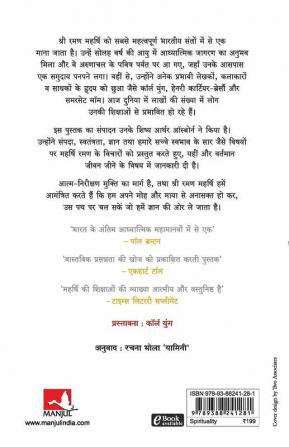 श्री रमण महर्षि को सबसे महत्वपूर्ण भारतीय संतों में से एक
माना जाता है। उन्हें सोलह वर्ष की आयु में आध्यात्मिक जागरण का अनुभव
मिला और वे अरुणाचल के पवित्र पर्वत पर आ गए, जहाँ उनके आसपास
एक समुदाय पनपने लगा। वहीं से, उन्होंने अनेक प्रभावी लेखकों, कलाकारों
व साधकों के हृदय को छुआ जैसे कॉर्ल युंग, हेनरी कार्टियर-ब्रेसौं और
समरसेट मॉम। आज दुनिया में लाखों की संख्या में लोग
उनकी शिक्षाओं से प्रभावित हो रहे हैं।
इस पुस्तक का संपादन उनके शिष्य आर्थर ऑस्बोर्न ने किया है।
उन्होंने संपदा, स्वतंत्रता, ज्ञान तथा हमारे सच्चे स्वभाव के सार जैसे विषयों
पर महर्षि रमण के विचारों को प्रस्तुत करते हुए, यहीं और वर्तमान
जीवन जीने के विषय में जानकारी दी है।
आत्म-निरीक्षण मुक्ति का मार्ग है, तथा श्री रमण महर्षि हमें
आमंत्रित करते हैं कि हम अपने मोह और माया से अनासक्त हो कर,
उस पथ पर चल सकें जो हमें ज्ञान की ओर ले जाता है।
'भारत के अंतिम आध्यात्मिक महामानवों में से एक'
– पॉल ब्रन्टन
'वास्तविक प्रसन्नता की खोज को प्रकाशित करती पुस्तक'
– एकहार्ट टॉल
'महर्षि की शिक्षाओं की व्याख्या आत्मीय और वस्तुनिष्ठ है'
– टाइम्स लिटररी सप्लीमेंट
प्रस्तावना : कॉर्ल युंग
अनुवाद : रचना भोला 'यामिनी'
MANJUL
www.manjulindia.com
eBook available
ISBN 978-93-88241-28-1
9 789388 241281
Spirituality ₹199
Cover design by Two Associates